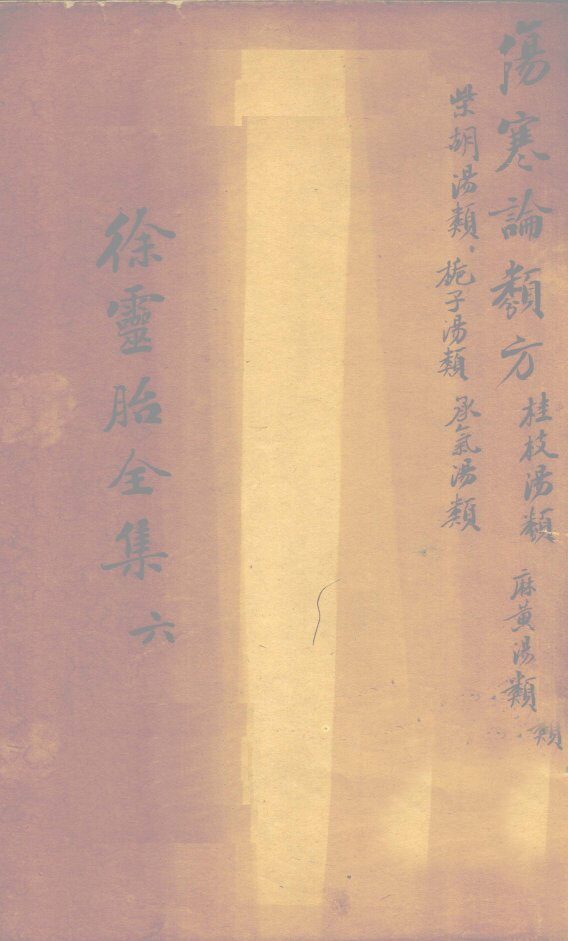 傷寒論類方 桂枝湯類 麻黄湯類
類
柴胡湯類、梔子湯類 承氣湯類
徐靈胎全集 六